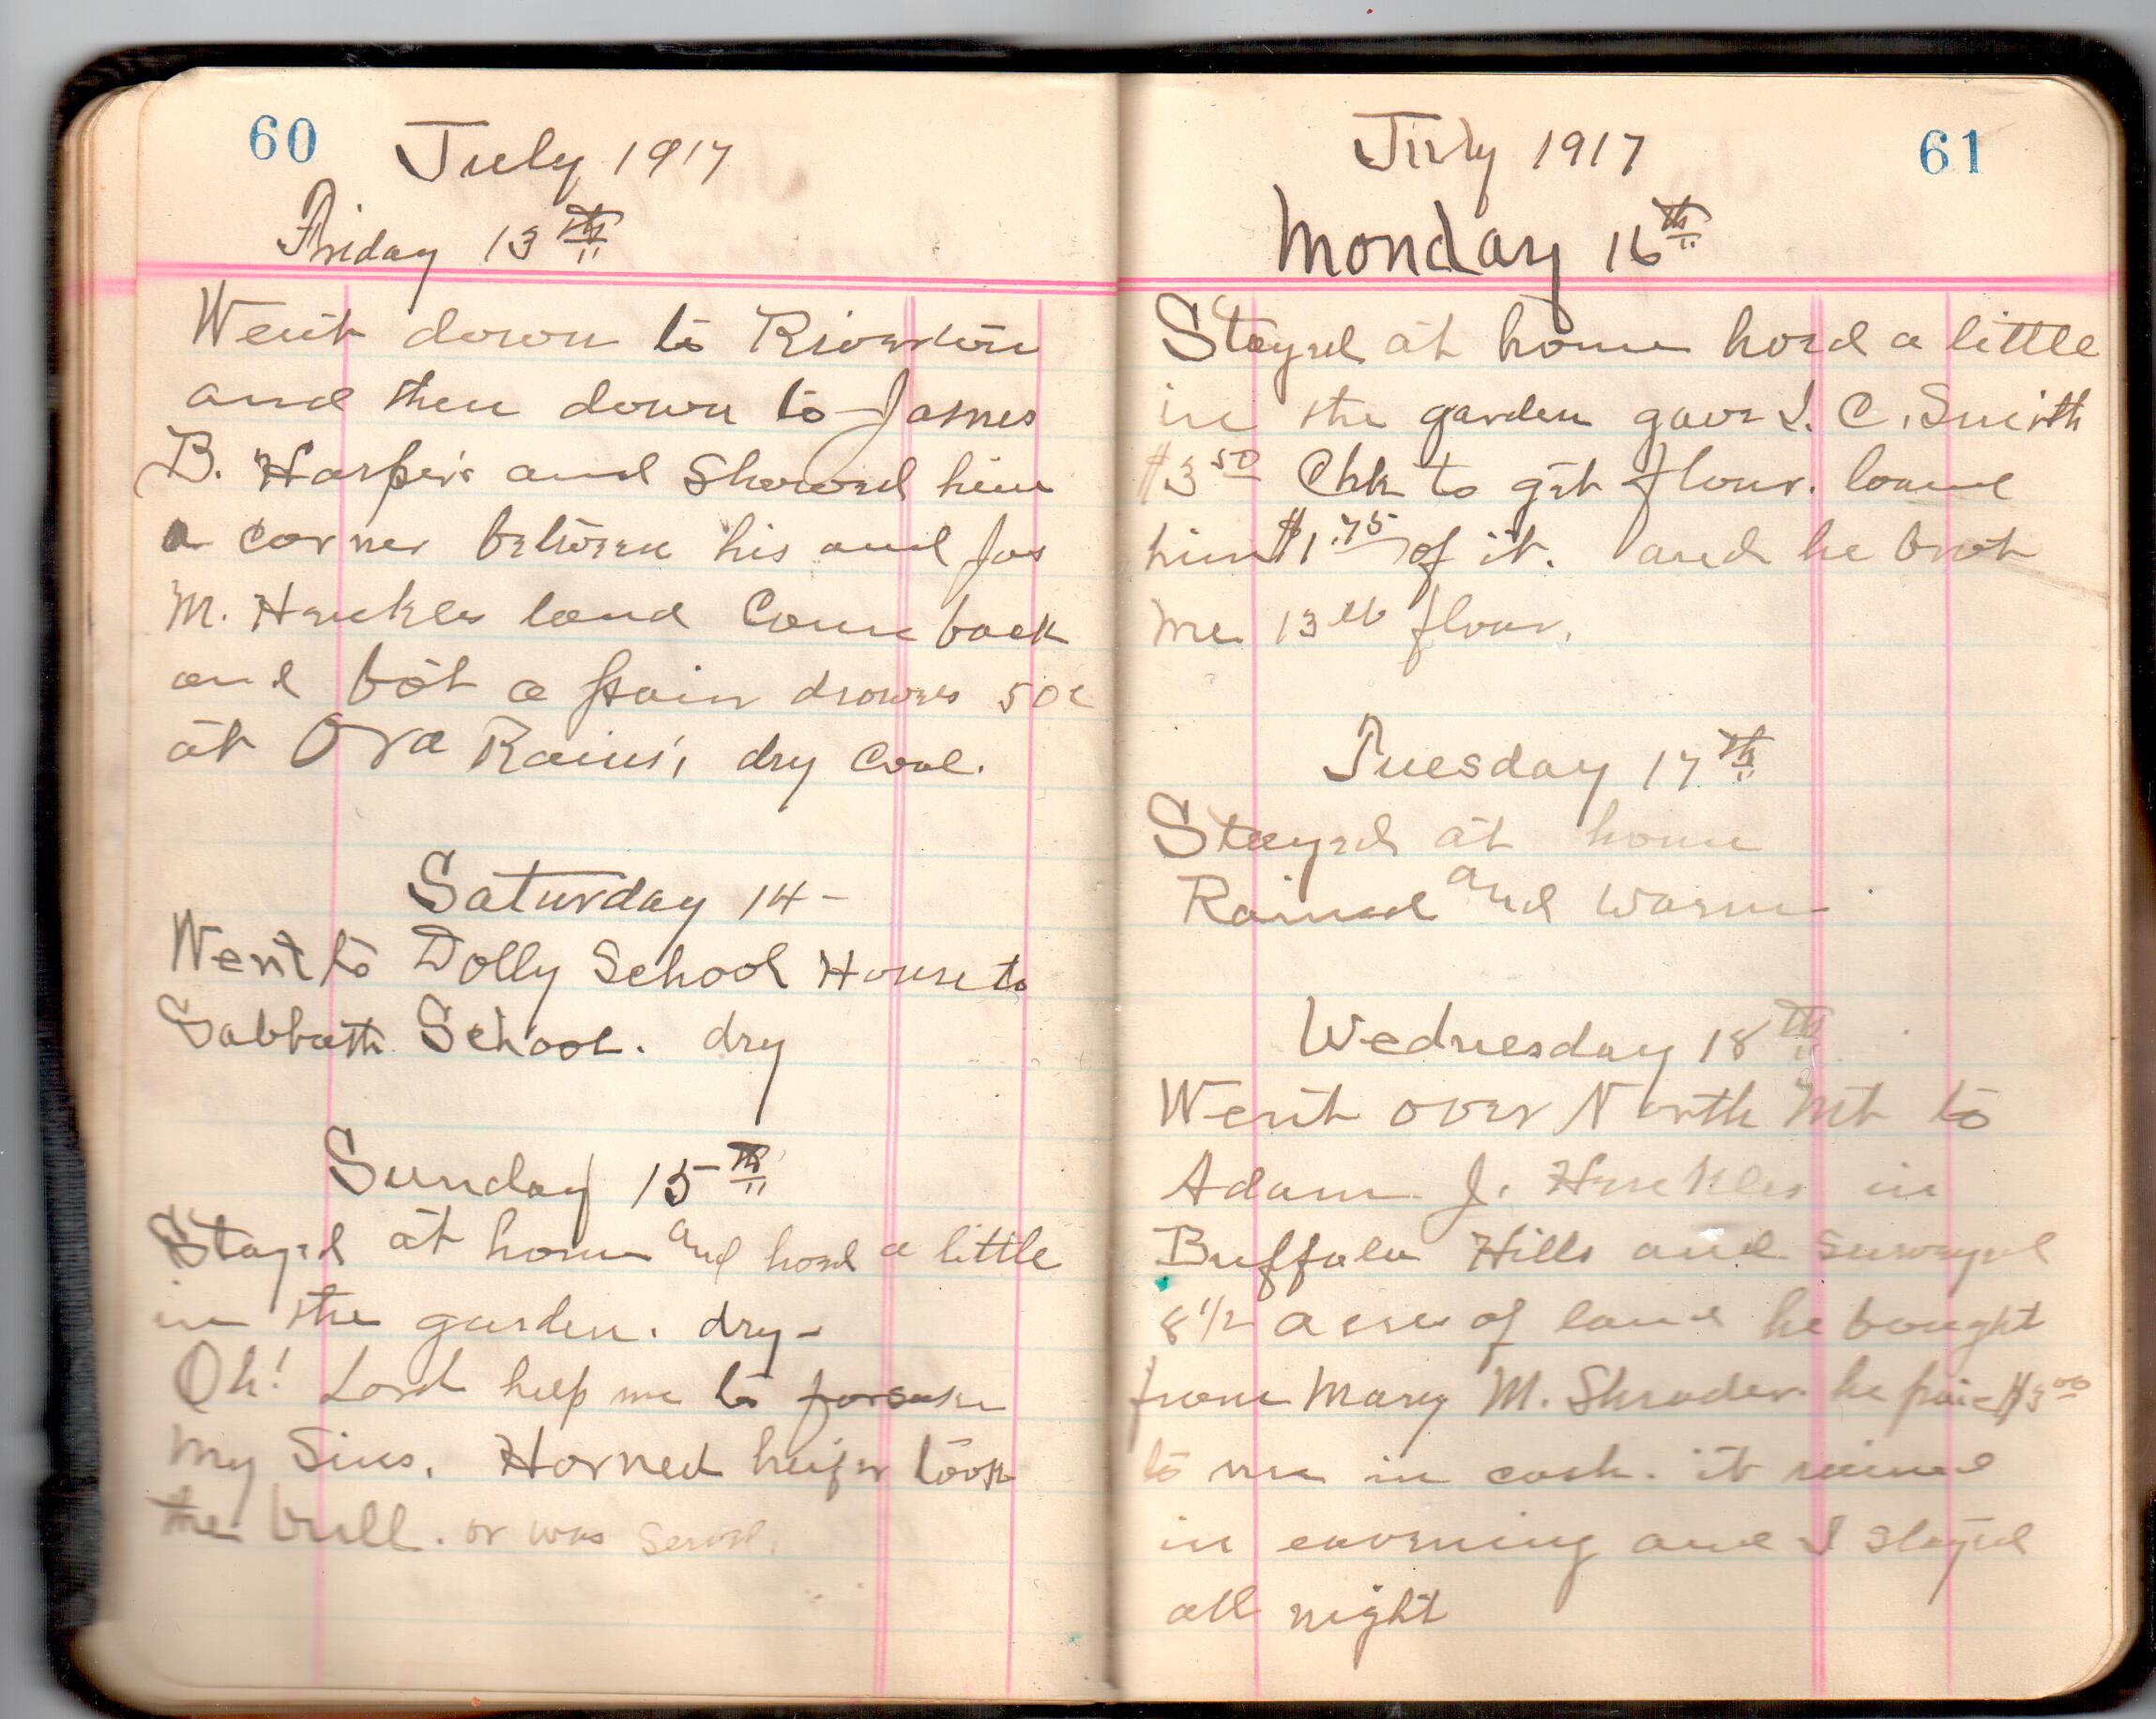 60
July 1917
Friday 13th
Went down to Riverton
and then down to James
B. Harper's and Showed him
a corner between his and Jas
M. Hinkles land Come back
and bot a pair drawrs 50c
at Ora Rains', dry Cool.
Saturday 14-
Went to Dolly School House to
Sabbath School. dry
Sunday 15th
Stayed at home and hoed a little
in the garden. dry-
Oh! Lord help me to forsake
My Sins. Horned heifer took
the bull. or was
61
July 1917
Monday 16th
Stayed at home hoed a little
in the garden gave C. Smith
$3 50 Chk to git flour. loaned
him $1.75 of it. and he brot
me 13 lb flour.
Tuesday 17th
Stayed at home
Rained and warm
Wednesday 18th
Went over North Mt to
Adam J. Hinkles in
Buffalo Hills and surveyed
8 1/2 acres of land he bought
from Mary M. Shrader. he paid $3 00
to me in cash. it rained
in evening and I stayed
all night